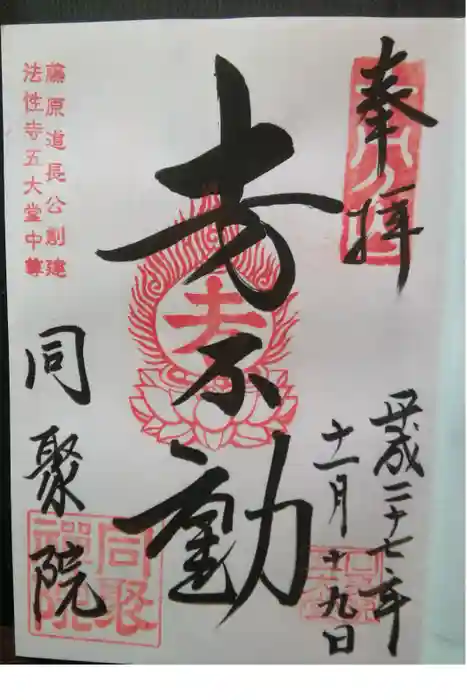 奉拝
平成二十七年
十一月十九日
不動
藤原道長公創建
法性寺五大堂中尊
同聚院
同聚
禪院